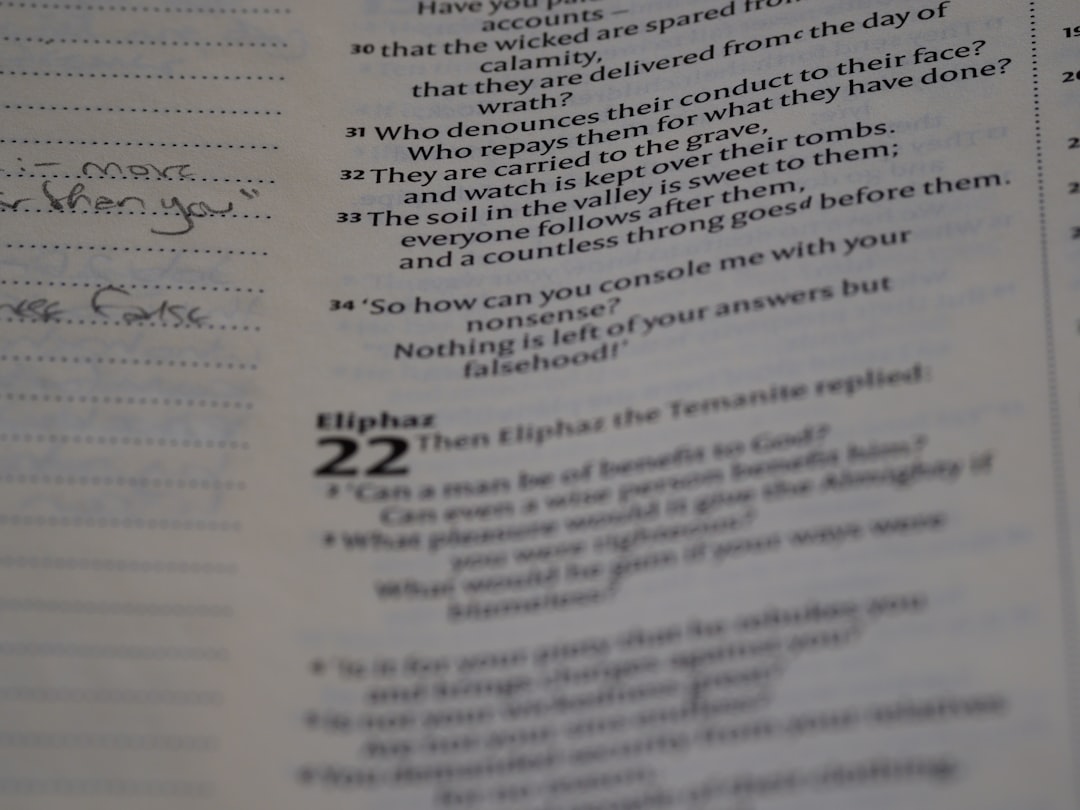 :- more
r then you"
False
Have you
accounts –
30 that the wicked are spared from
calamity,
that they are delivered fromc the day of
wrath?
31 Who denounces their conduct to their face?
Who repays them for what they have done?
32 They are carried to the grave,
and watch is kept over their tombs.
33 The soil in the valley is sweet to them;
everyone follows after them,
and a countless throng goesd before them.
34 ‘So how can you console me with your
nonsense?
Nothing is left of your answers but
falsehood!’
Eliphaz
22 Then Eliphaz the Temanite replied:
2 ‘Can a man be of benefit to God?
Can even a wise person benefit him?
3 What pleasure would it give the Almighty if
you were righteous?
What would he gain if your ways were
blameless?
4 ‘Is it for your piety that he rebukes you
and brings charges against you?
5 Is not your wickedness great?
19